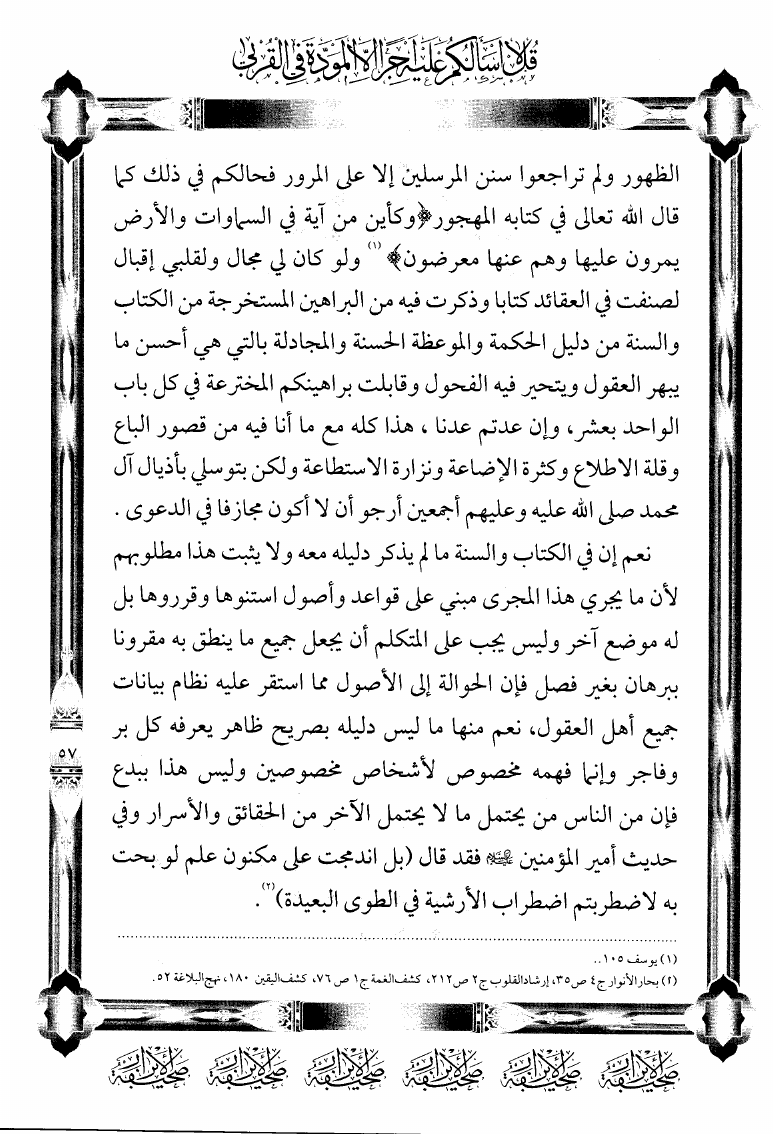 قل لا أسألكم عليه أجرا إلا المودة في القربى
الظهور ولم تراجعوا سنن المرسلين إلا على المرور فحالكم في ذلك كما
قال الله تعالى في كتابه المهجور﴿وكأين من آية في السماوات والأرض
يمرون عليها وهم عنها معرضون﴾ (١) ولو كان لي مجال ولقلبي إقبال
لصنفت في العقائد كتابا وذكرت فيه من البراهين المستخرجة من الكتاب
والسنة من دليل الحكمة والموعظة الحسنة والمجادلة بالتي هي أحسن ما
يبهر العقول ويتحير فيه الفحول وقابلت براهينكم المخترعة في كل باب
الواحد بعشر، وإن عدتم عدنا ، هذا كله مع ما أنا فيه من قصور الباع
وقلة الاطلاع وكثرة الإضاعة ونزارة الاستطاعة ولكن بتوسلي بأذيال آل
محمد صلى الله عليه وعليهم أجمعين أرجو أن لا أكون مجازفا في الدعوى .
نعم إن في الكتاب والسنة ما لم يذكر دليله معه ولا يثبت هذا مطلوبهم
لأن ما يجري هذا المجرى مبني على قواعد وأصول استنوها وقرروها بل
له موضع آخر وليس يجب على المتكلم أن يجعل جميع ما ينطق به مقرونا
ببرهان بغير فصل فإن الحوالة إلى الأصول مما استقر عليه نظام بيانات
جميع أهل العقول، نعم منها ما ليس دليله بصريح ظاهر يعرفه كل بر
وفاجر وإنما فهمه مخصوص لأشخاص مخصوصين وليس هذا ببدع
فإن من الناس من يحتمل ما لا يحتمل الآخر من الحقائق والأسرار وفي
حديث أمير المؤمنين فقد قال (بل اندمجت على مكنون علم لو بحت
به لاضطربتم اضطراب الأرشية في الطوى البعيدة)(٢).
(١) يوسف ١٠٥..
(٢) بحار الأنوار ج٤ ص٣٥، إرشاد القلوب ج٢ ص٢١٢، كشف الغمة ج١ ص ٧٦، كشف اليقين ١٨٠، نهج البلاغة ٥٢.
٥٧
صحيفة الأبرار صحيفة الأبرار صحيفة الأبرار صحيفة الأبرار صحيفة الأبرار صحيفة الأبرار